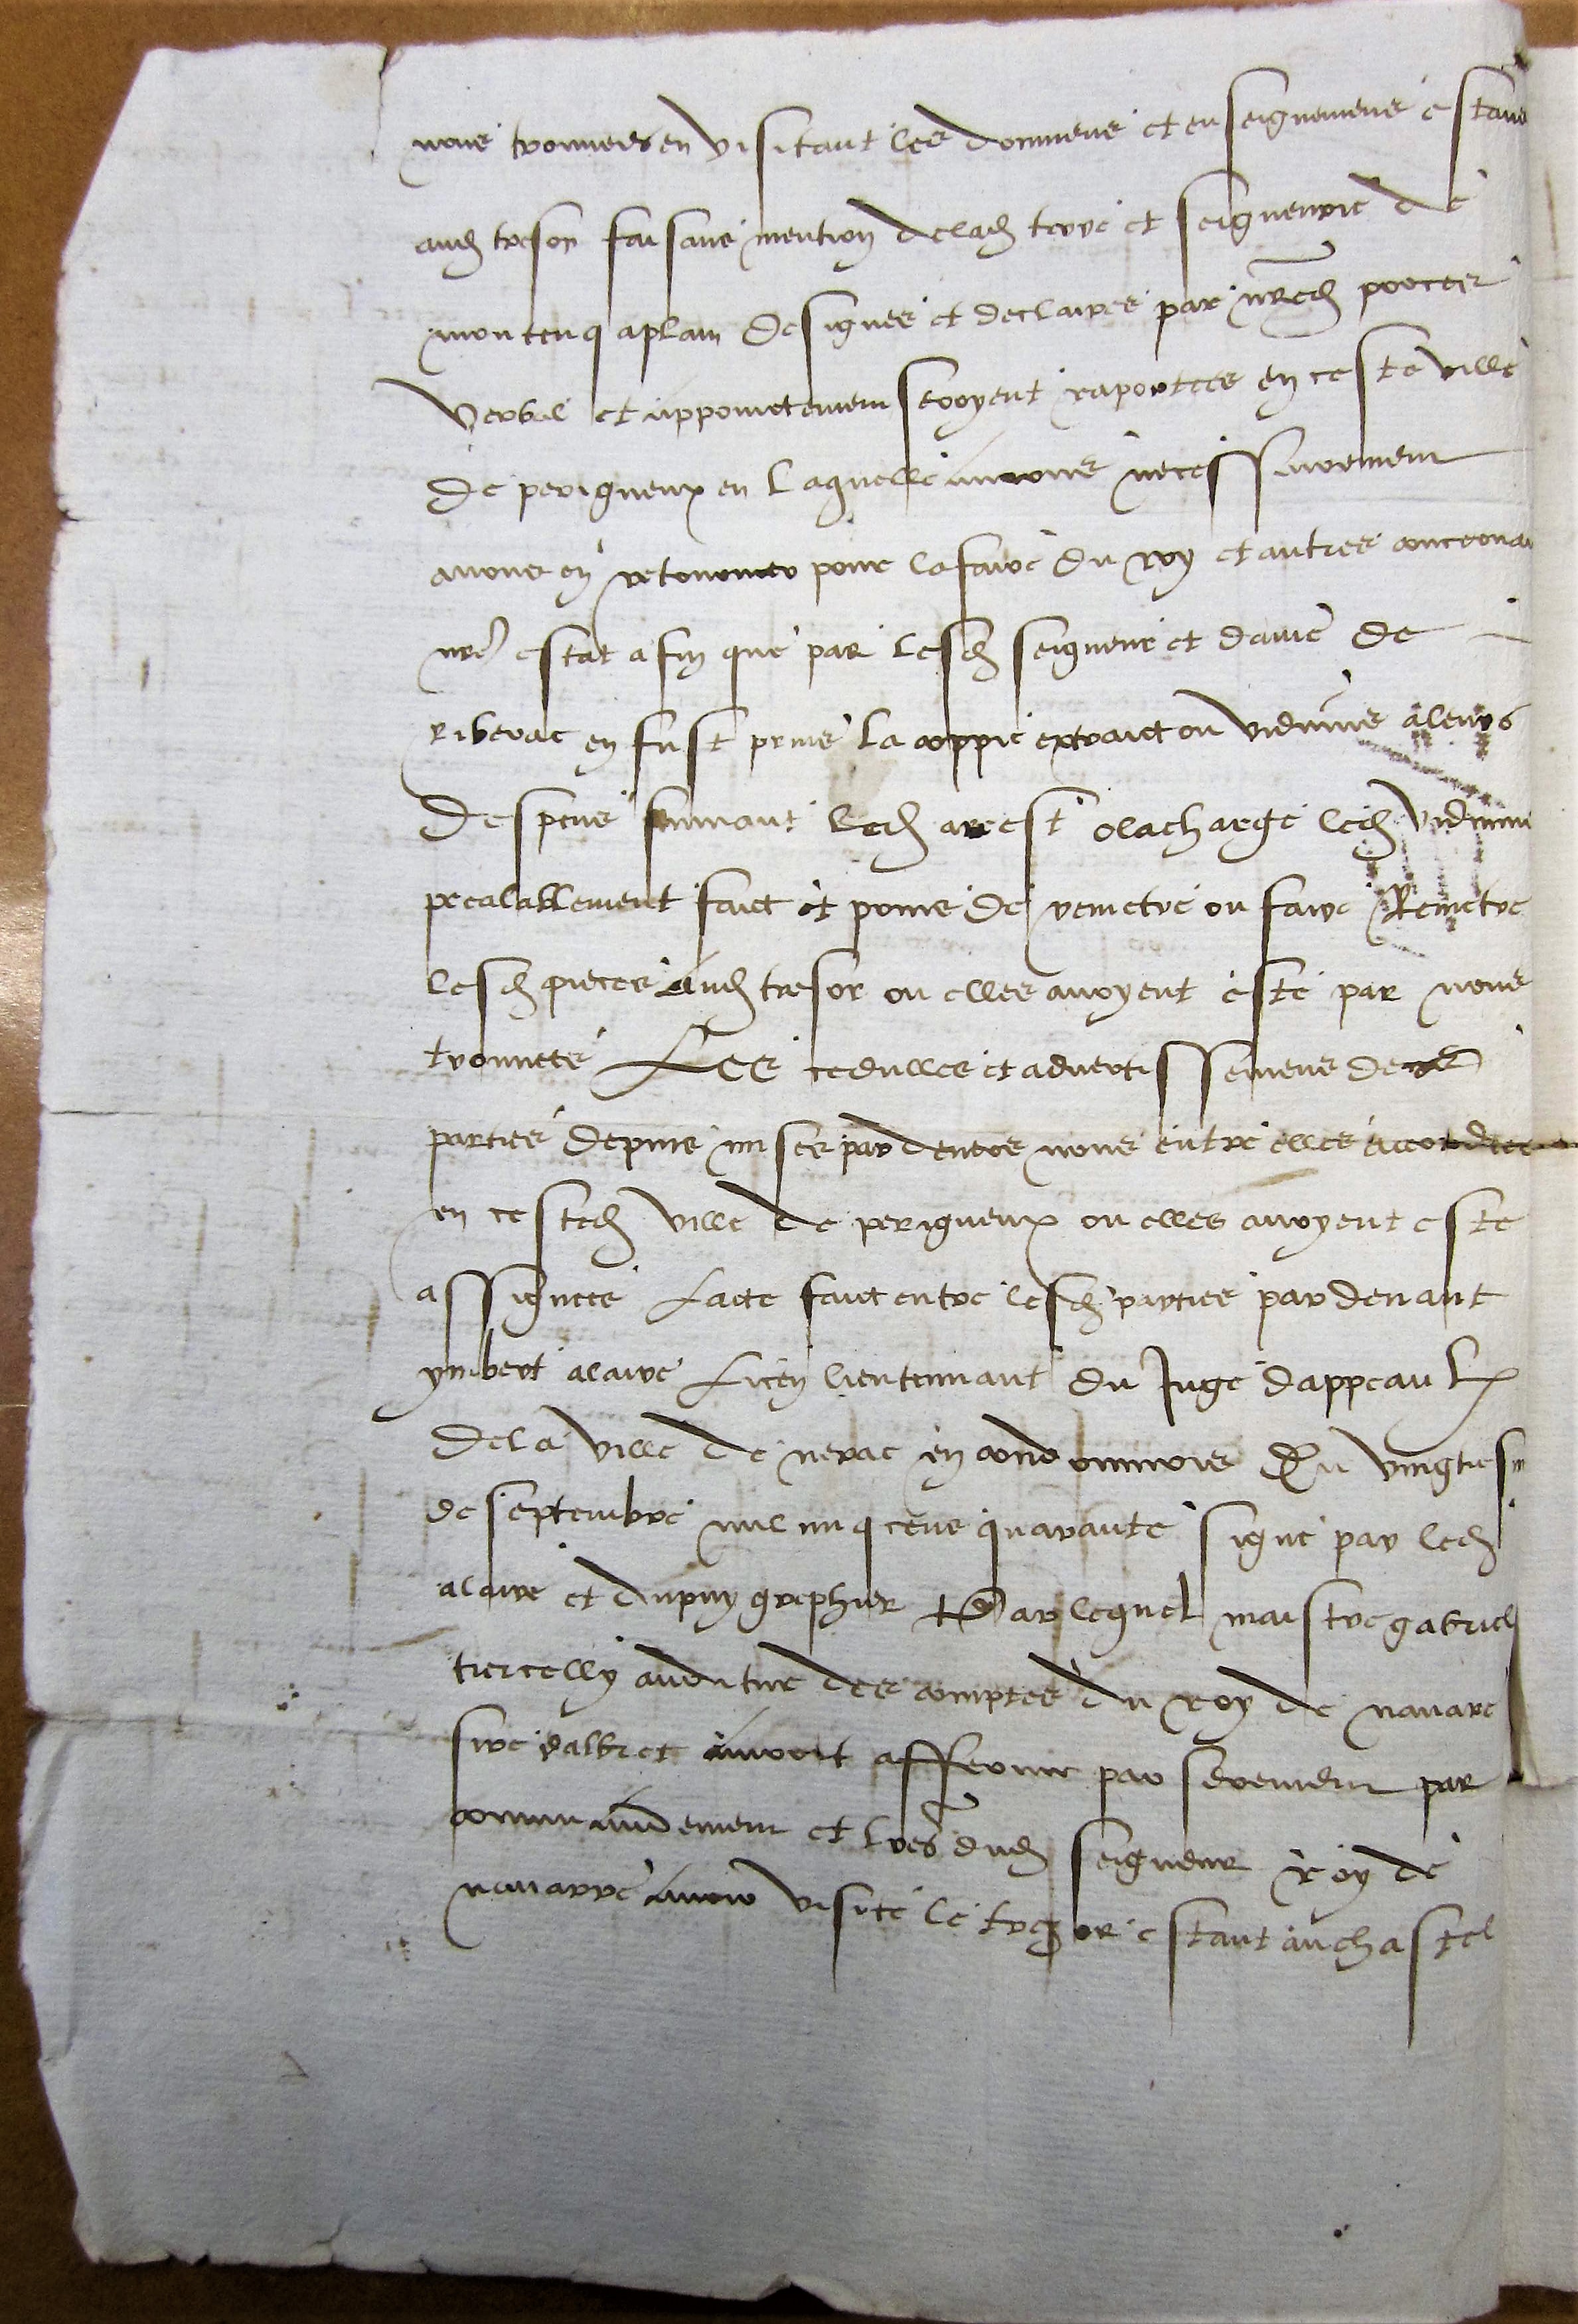 nous trouvees en visitant les documens et enseignemens estans
aud tresor faisans mention de lad terre et seigneurie de
montencq a plain designes et declaires par nred proces
verbal et appoinctement seroyent raportees en ceste ville
de perigueux en laquelle aurions necessairement
avons en retourner pour lafaire du roy et autres concernan
nre estat afin que par lesd seigneur et dame de
riberac en fust prins la coppie extraict ou vidimus a leurs
despens suivant led arrest o la charge led vidimus
prealablement faict et poinct de remetre ou faire Remetre
lesd pieces aud tresor ou elles avoyent este par nous
trouvees Les cedulles et advertissemens desd
parties depuis mises par devers nous entre elles accordees
en cested ville de perigueux ou elles avoyent este
assignees Lacte faict entre lesd parties par devant
ymbert alaire Licen lieutennant du Juge dappeaulx
de la ville de nerac en condommois Du vingtiesm
de septembre mil cinq cens quarante signe par led
alaire et dupuy grephier Par lequel maistre gabriel
tiercelly auditeur des comptes du roy de navare
sire dalbret auroit afferme par serement par
commandement et lres dud seigneur roy de
navarre avoir visite le tresor estant au chastel